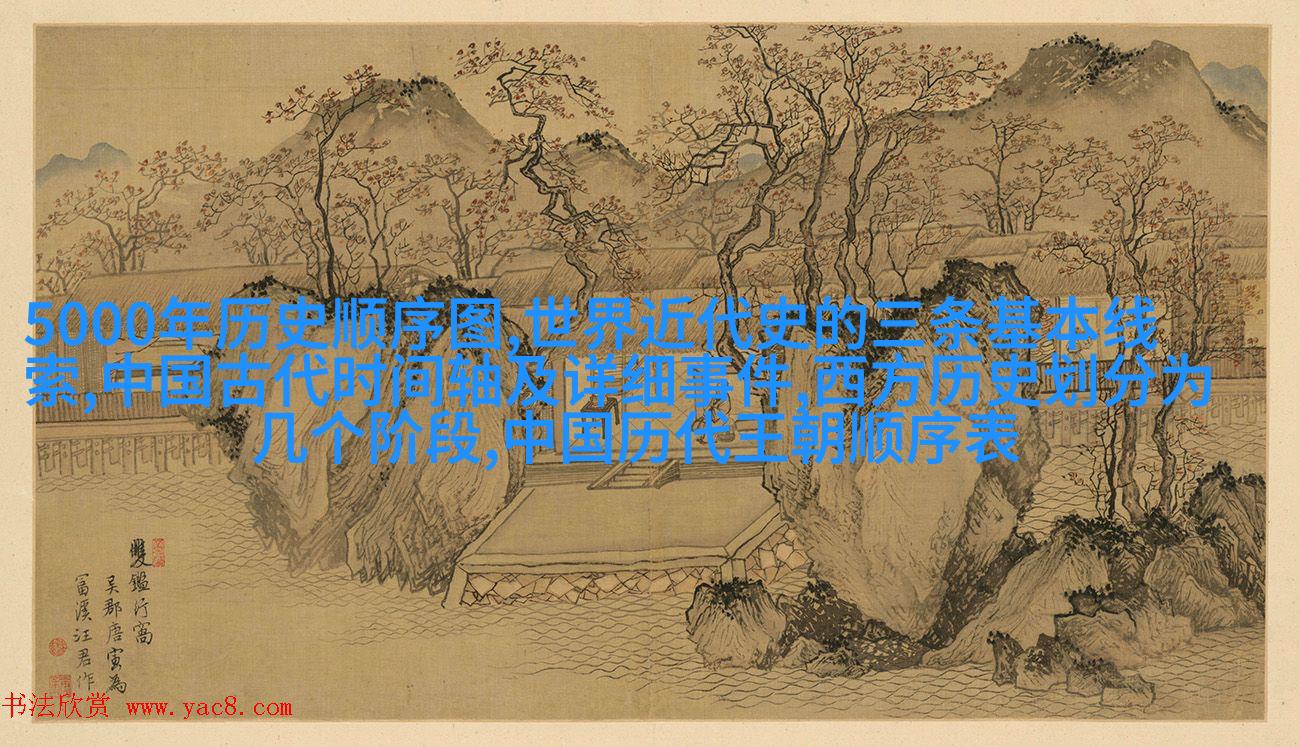 5000年历史顺序图,世界近代史的三条基本线
索,中国古代时间轴及详细事件,西方历史划分为
几个阶段,中国历代王朝顺序表
雙鑑行窩
吴郡唐寅為
富溪汪君作
书法欣赏 www.yac8.com